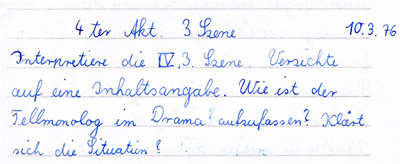 4 ter Akt. 3 Szene 10.3.76
Interpretiere die IV, 3. Szene. Versichte
auf eine Inhaltsangabe. Wie ist der
Tellmonolog im Drama? aufzufassen? Klärt
sich die Situation?